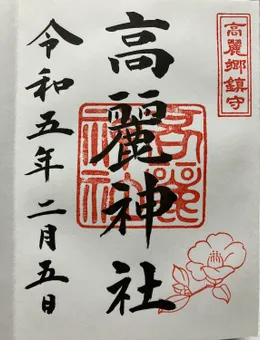 高麗郷鎮守
高麗神社
高麗神社
令和五年二月五日